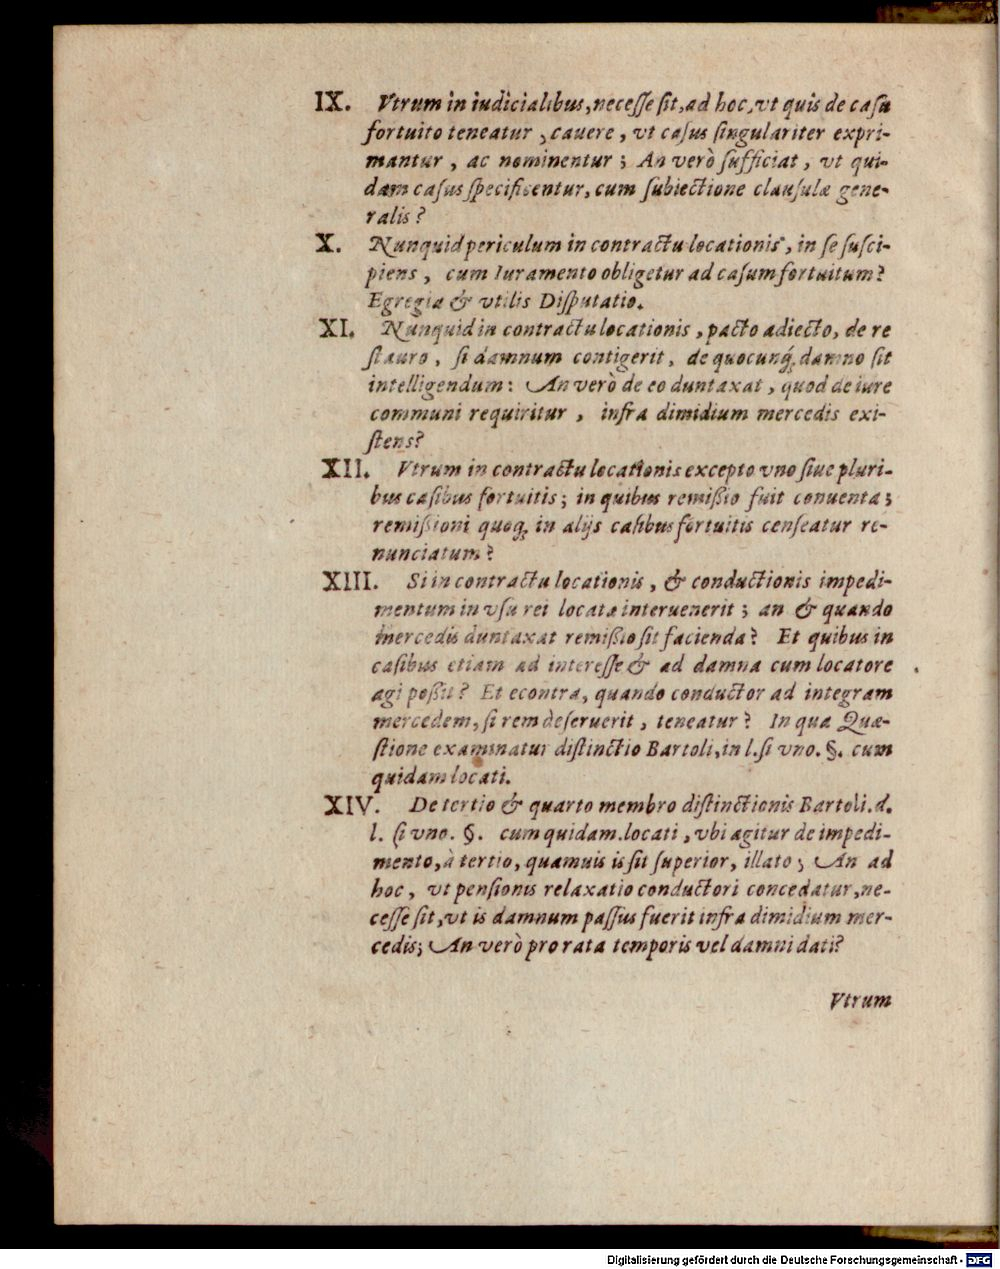 IX. Vtrum in iudicialibus, necesse sit, ad hoc, vt quis de casu
fortuito teneatur, cauere, vt casus singulariter expri-
mantur, ac nominentur; An verò sufficiat, vt qui-
dam casus specificentur, cum subiectione clausulæ gene-
ralis?
X. Nunquid periculum in contractu locationis, in se susci-
piens, cum Iuramento obligetur ad casum fortuitum?
Egregia & vtilis Disputatio.
XI. Nunquid in contractu locationis, pacto adiecto, de re
stauro, si damnum contigerit, de quocunq́; damno sit
intelligendum: An verò de eo duntaxat, quod de iure
communi requiritur, infra dimidium mercedis exi-
stens?
XII. Vtrum in contractu locationis excepto vno siue pluri-
bus casibus fortuitis; in quibus remißio fuit conuenta;
remißioni quoq; in alijs casibus fortuitis censeatur re-
nunciatum?
XIII. Si in contractu locationis, & conductionis impedi-
mentum in vsu rei locatæ interuenerit; an & quando
mercedis duntaxat remißio sit facienda? Et quibus in
casibus etiam ad interesse & ad damna cum locatore
agi poßit? Et econtra, quando conductor ad integram
mercedem, si rem deseruerit, teneatur? In qua Quæ-
stione examinatur distinctio Bartoli, in l. si vno. §. cum
quidam locati.
XIV. De tertio & quarto membro distinctionis Bartoli. d.
l. si vno. §. cum quidam. locati, vbi agitur de impedi-
mento, à tertio, quamuis is sit superior, illato; An ad
hoc, vt pensionis relaxatio conductori concedatur, ne-
cesse sit, vt is damnum passus fuerit infra dimidium mer-
cedis; An verò pro rata temporis vel damni dati?
Vtrum
Digitalisierung gefördert durch die Deutsche Forschungsgemeinschaft - DFG